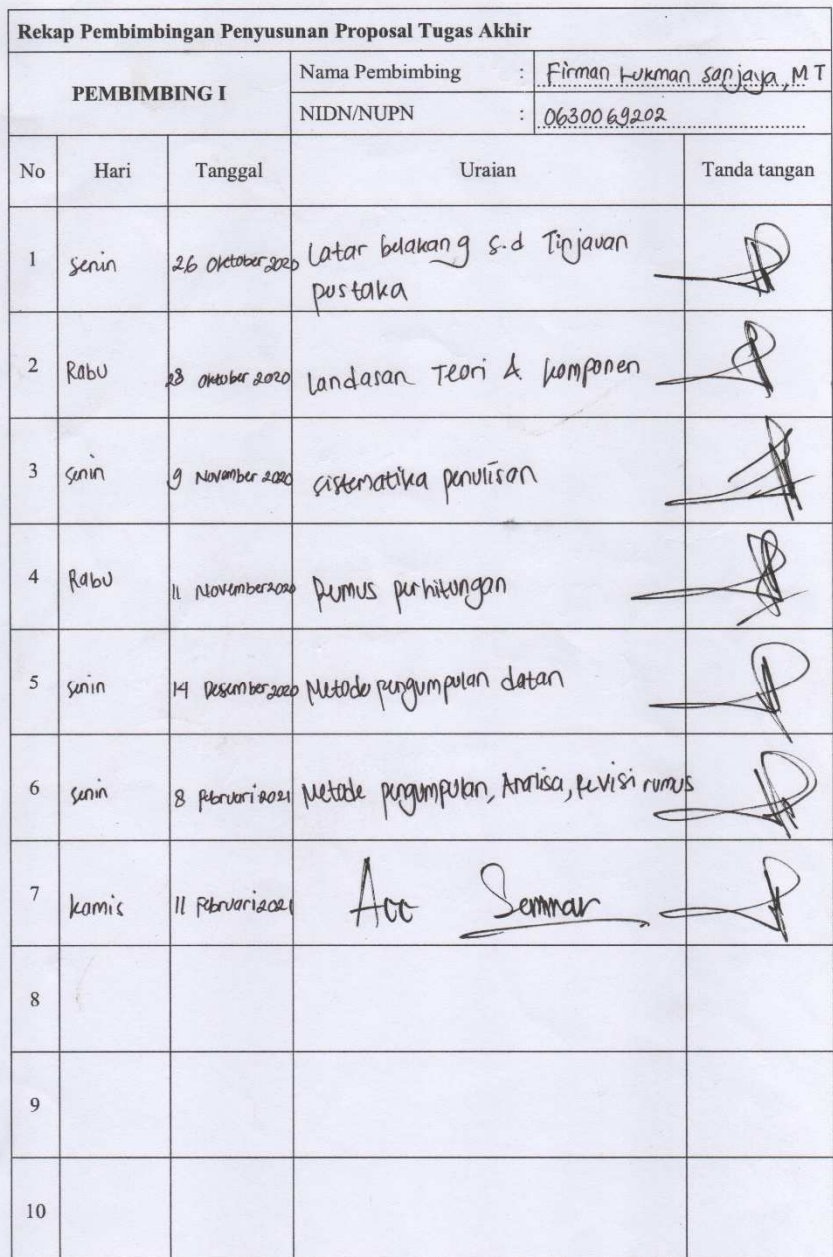 Rekap Pembimbingan Penyusunan Proposal Tugas Akhir
PEMBIMBING I
Nama Pembimbing : Firman Lukman Sanjaya, MT
NIDN/NUPN : 0630069202
No Hari Tanggal Uraian Tanda tangan
1 Senin 26 Oktober 2020 Latar belakang s.d Tinjauan
pustaka
2 Rabu 28 Oktober 2020 Landasan Teori & komponen
3 Senin 9 November 2020 sistematika penulisan
4 Rabu 11 November 2020 Rumus perhitungan
5 Senin 14 Desember 2020 Metode pengumpulan datan
6 Senin 8 februari 2021 Metode pengumpulan, Analisa, Revisi rumus
7 kamis 11 Februari 2021 Acc Seminar
8
9
10